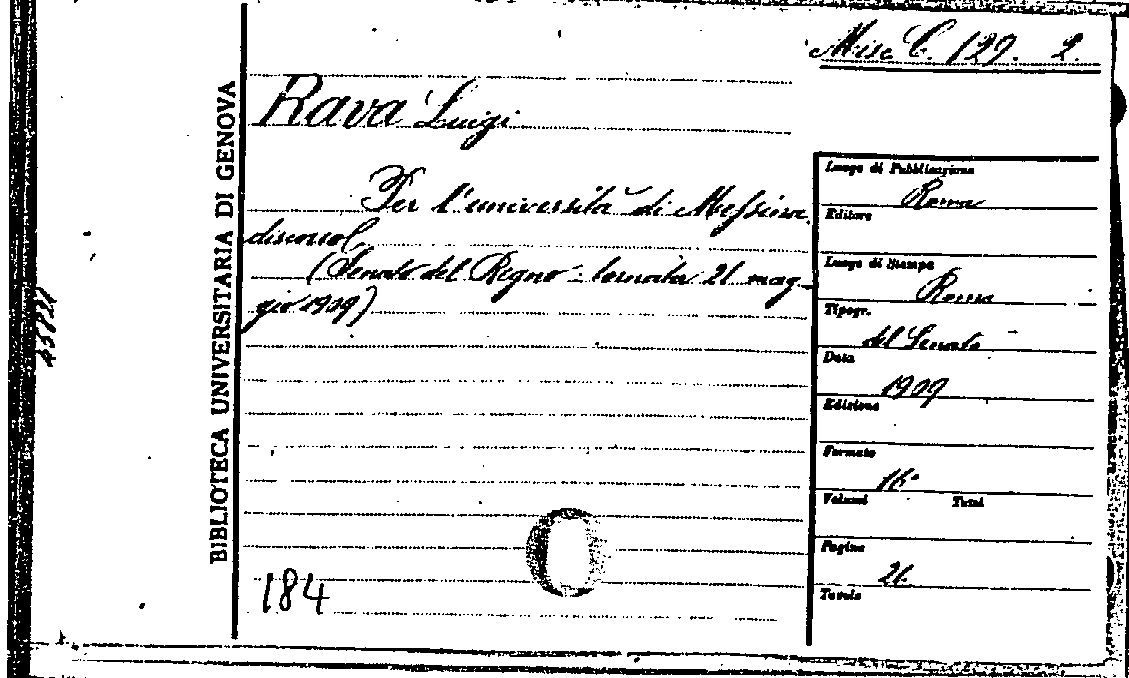 Misc C. 129. 2.
Rava Luigi
Per l'università di Messina
discorso
(Senato del Regno - tornata 21 mag-
gio 1909)
184
BIBLIOTECA UNIVERSITARIA DI GENOVA
Luogo di Pubblicazione
Roma
Editore
Luogo di Stampa
Roma
Tipogr.
del Senato
Data
1909
Edizione
Formato
16°
Volumi Tomi
Pagine
Tavole